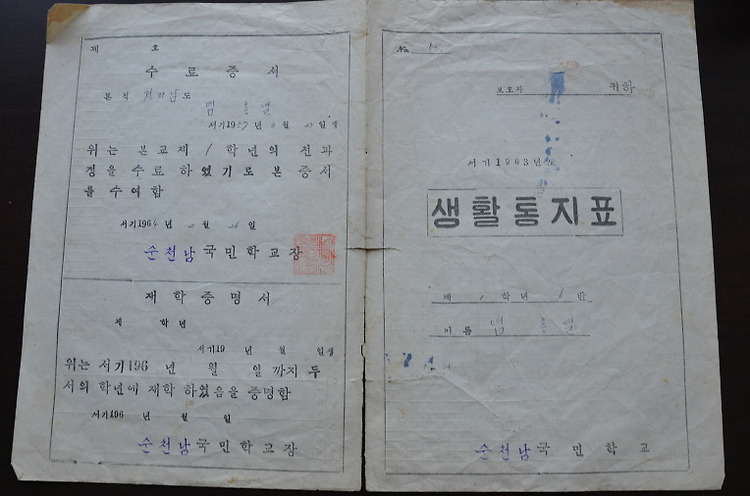 제 호
수료증서
본적 전라남도
염
서기1957년 월 일생
위는 본교 제 1 학년의 전과
정을 수료 하였기로 본 증서
를 수여함
서기1964년 2월 일
순천남국민학교장
재학증명서
제 학년
서기19 년 월 일생
위는 서기196 년 월 일 까지 두
서의 학년에 재학 하였음을 증명함
서기196 년 월 일
순천남국민학교장
No.
보호자 귀하
서기1963년도
생활통지표
제 1 학년 1 반
이름 염
순천남국민학교